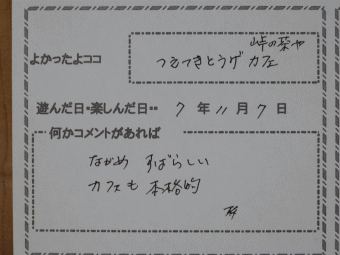 峠の茶や
よかったよココ つえつきとうげ カフェ
遊んだ日・楽しんだ日・・ 7 年 11 月 7 日
何かコメントがあれば
ながめ すばらしい
カフェも 本格的